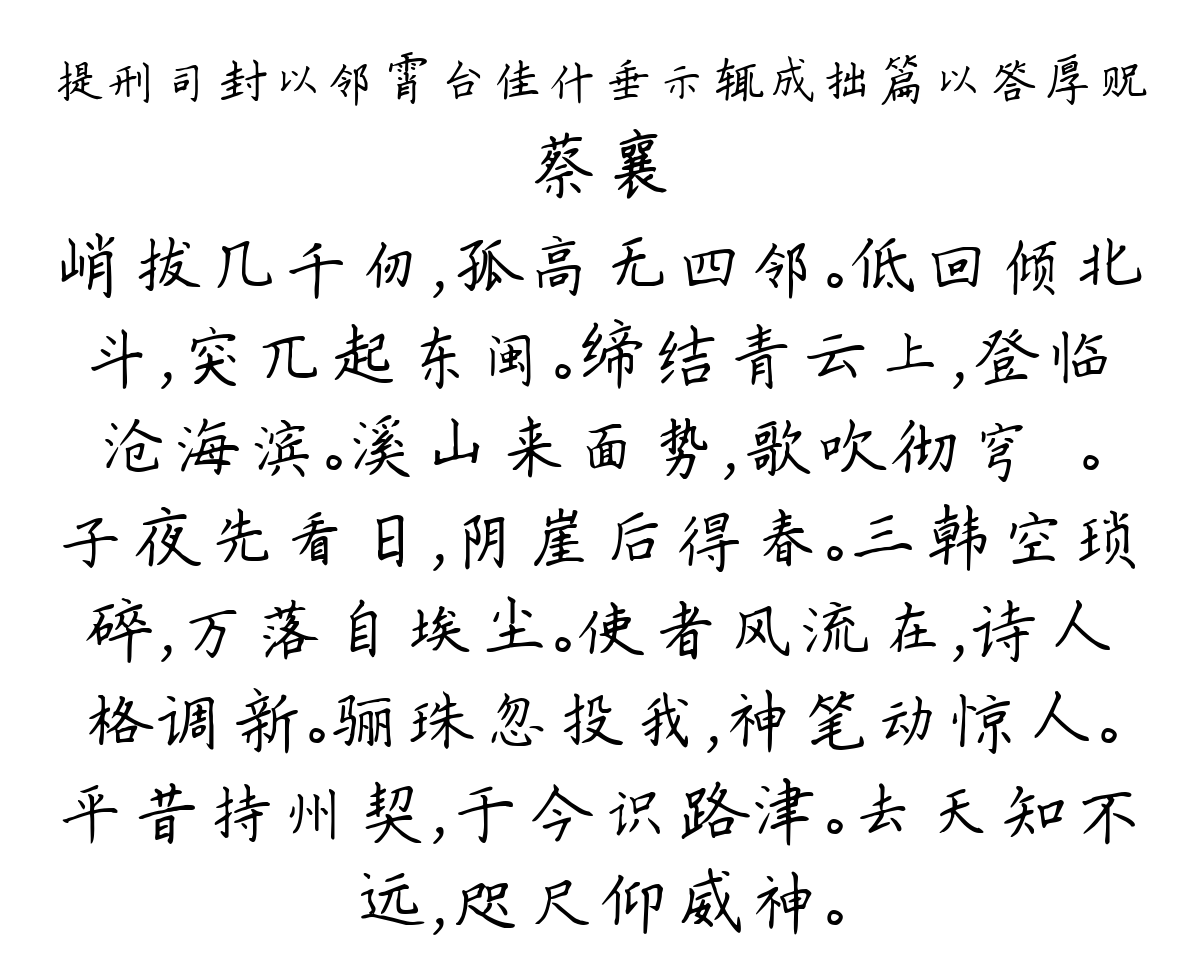 提刑司封以邻霄台佳什垂示辄成拙篇以答厚贶
蔡襄
峭拔几千仞,孤高无四邻。低回倾北
斗,突兀起东闽。缔结青云上,登临
沧海滨。溪山来面势,歌吹彻穹 。
子夜先看日,阴崖后得春。三韩空琐
碎,万落自埃尘。使者风流在,诗人
格调新。骊珠忽投我,神笔动惊人。
平昔持州契,于今识路津。去天知不
远,咫尺仰威神。